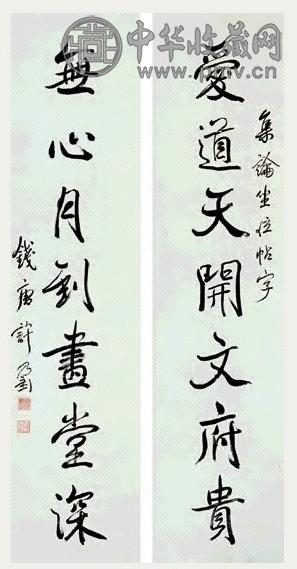 中华收藏网
集論坐位帖字
愛道天開文府貴
無心月到畫堂深
錢唐許乃釗